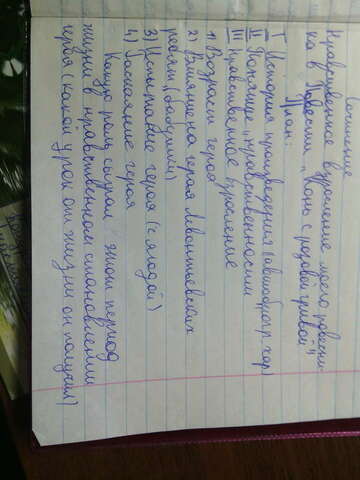 Сочинение
Нравственное взросление моего ровесни-
ка в повести „Конь с розовой гривой"
План:
I История произведения (автобиогр. хар)
II Понятие „нравственности"
III Нравственное взросление
1) Возраст героя
2) Влияние на героя Левонтьевских
ребят, (бабушки)
3) Испытание героя (с ягодой)
4) Раскаяние героя
Какую роль сыграл этот период
жизни в нравственном становлении
героя (какой урок от жизни он получил)